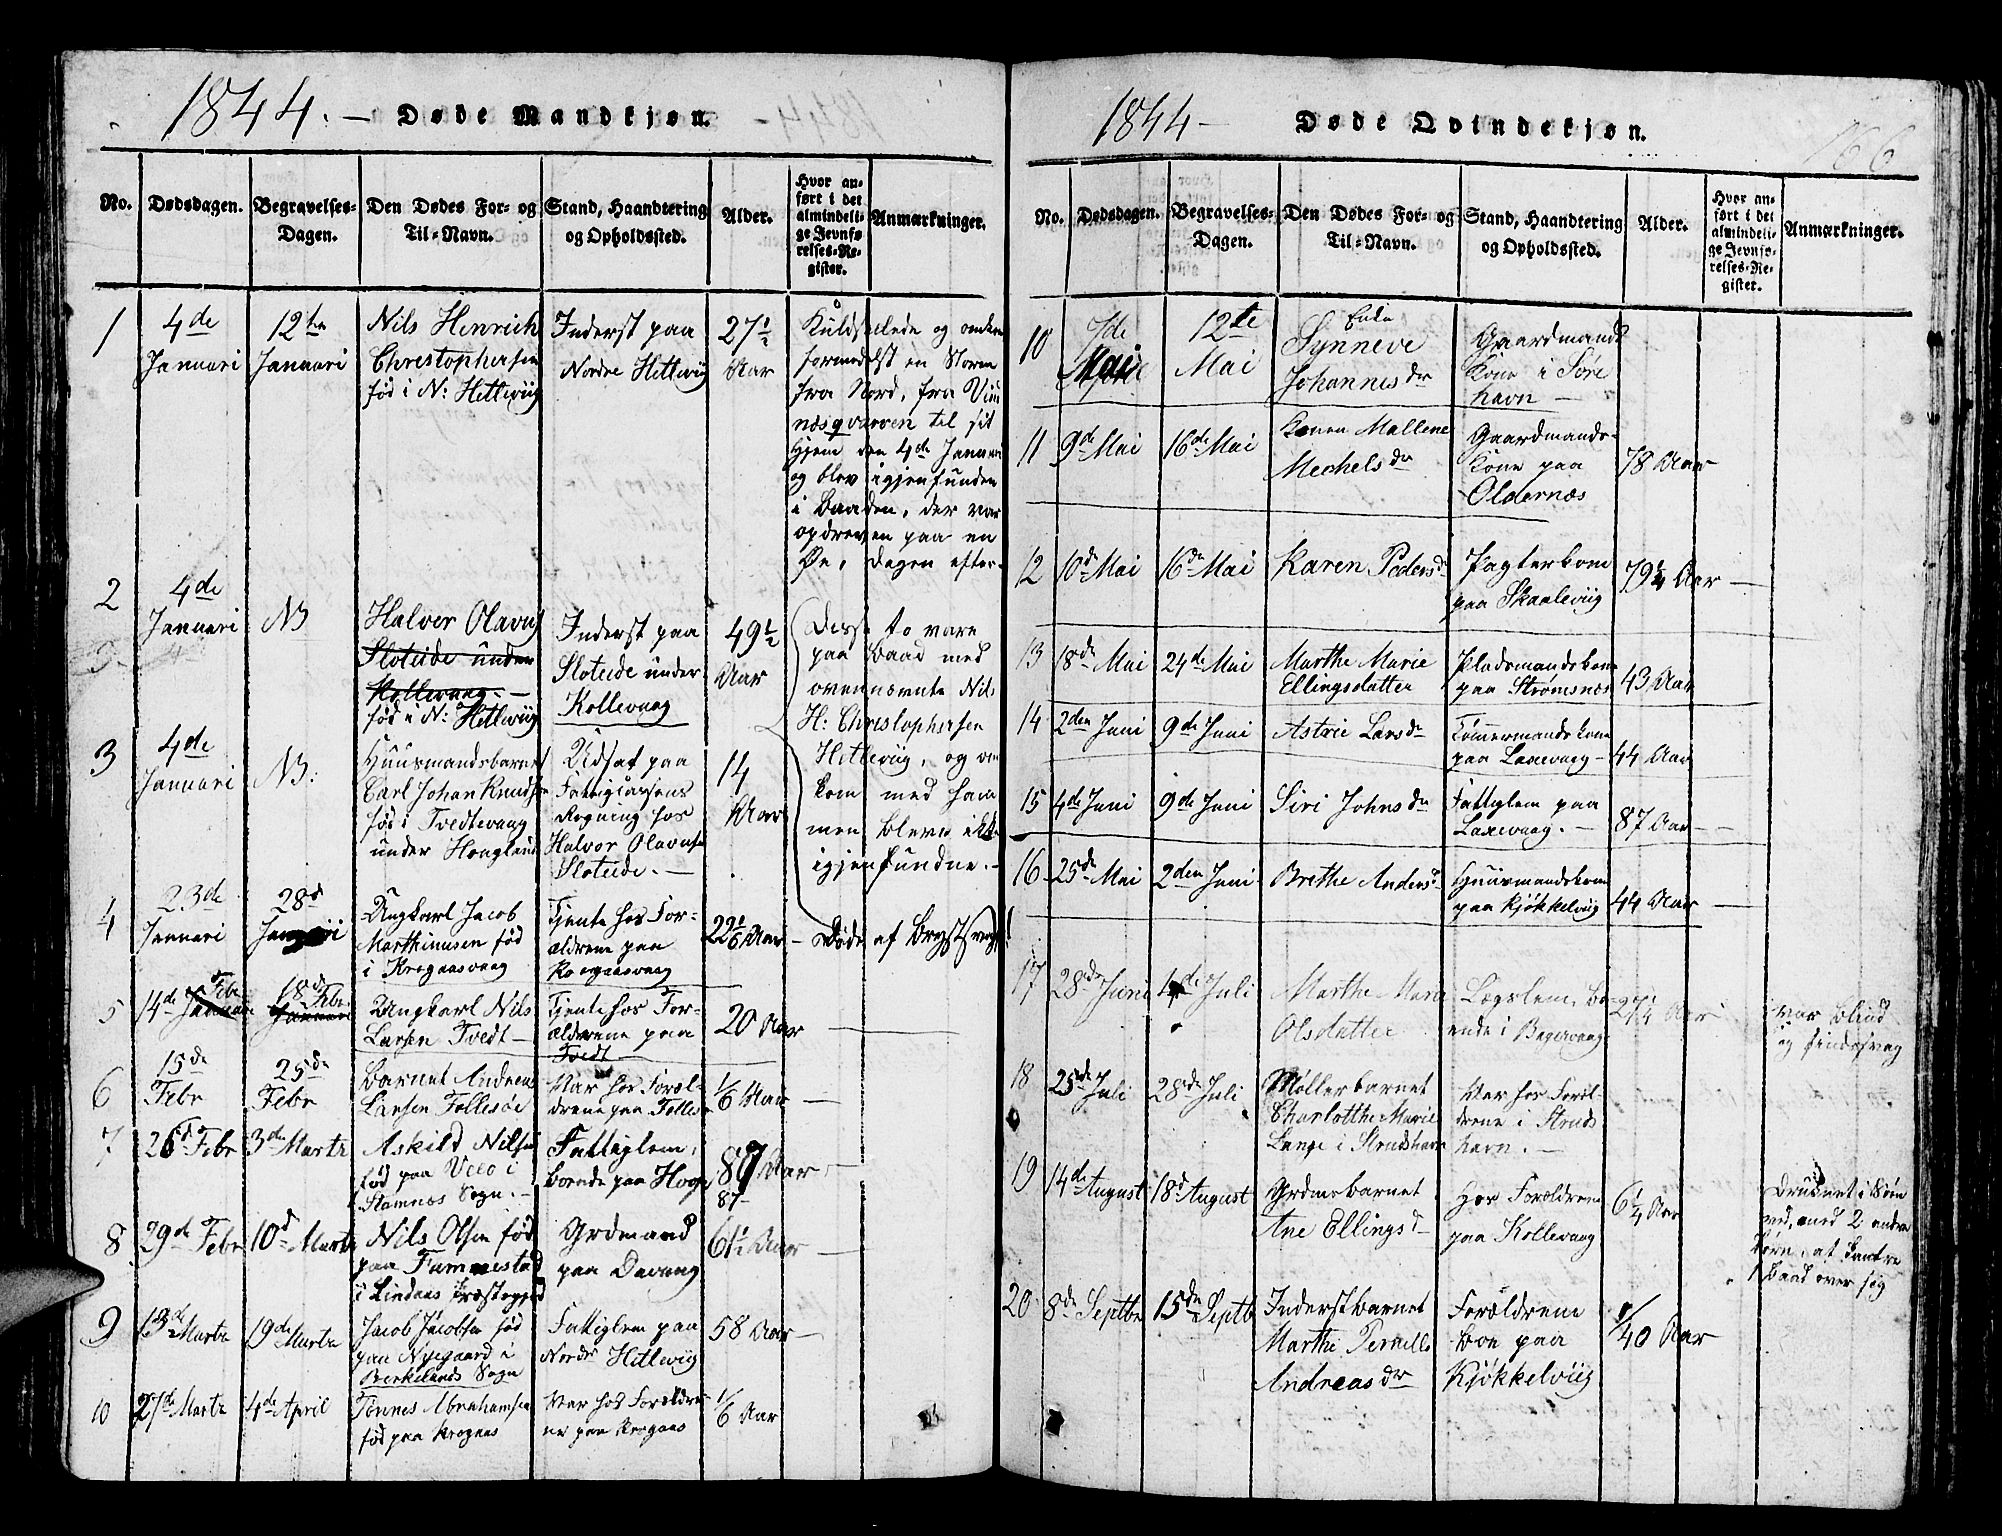 1844. — Døde Mandkjøn.
No. Dødsdagen. Begravelses-Dagen. Den Dødes For- og Til-Navn. Stand, Haandtering og Opholdssted. Alder. Hvor anført i det almindelige Jevnførelses-Register. Anmærkninger.
1 4de Januari 12te Januari
Nils Henrich
Christophersen
fød i N: Hetleviig
Inderst paa
Nordre Hetleviig
27½ Aar
Kuldseilede og omkom
formedelst en Storm
fra Nord, fra
næsqvarven til sit
Hjem den 4de Januari
og blev igjenfunden
i Baaden, der var
opdreven paa en
Øe, Dagen efter.
2 4de Januari NB
Halver Olavus
Sloteide under
Kollevaag. —
fød i N: Hetleviig
Inderst paa
Sloteide under
Kollevaag
49½ Aar
Disse to vare
paa Baad med
ovennævnte Nils
H: Christophersen
Hetleviig, og om
kom med ham
men bleve ikke
igjenfundne. —
3 4de Januari NB:
Huusmandsbarnet
Carl Johan Knudsen
fød i Tvedtevaag
under Hougland
Udsat paa
Fattigkassens
Regning hos
Halvor Olavus
Sloteide. —
14 Aar
4 23de Januari 28d Januarii
Ungkarl Jacob
Marthinusen fød
i Krogaasvaag
Tjente hos For-
ældrene paa
Krogaasvaag
22 1/6 Aar —
Døde af Brystsvag!
5 14de Febr Januari 18de Febr Januari
Ungkarl Nils
Larsen Tvedt —
Tjente hos For-
ældrene paa
Tvedt
20 Aar —
6 15de Febr 25de Febr
Barnet Andreas
Larsen Follesøe
Var hos Foræl-
drene paa Folles
1/6 Aar —
7 26d Febr 3die Martz
Askild Nilsen
fød paa
Stamnæs Sogn. —
Fattiglem,
boende paa Hoge
87 Aar. —
87
8 29de Febr 10d Martz
Nils Olsen fød
paa Fammestad
i Lindaas Præstegjed
Grdmand
paa Davang
61½ Aar —
9 13de Martz 19de Martz
Jacob Jacobsen fød
paa Nyegaard i
Berkelands Sogn
Fattiglem paa
Nordre Hetleviig
58 Aar —
10 27de Martz 4de April
Tønnes Abrahamsen
fød paa Krogaas
Var hos Forældre-
ne paa Krogaas
1/6 Aar
1844 — Døde Qvindekjøn.
166
No. Dødsdagen. Begravelses-Dagen. Den Dødes For- og Til-Navn. Stand, Haandtering og Opholdssted. Alder. Hvor anført i det almindelige Jevnførelses-Register. Anmærkninger.
10 7de Mai 12te Mai
Enke
Synneve
Johannesdr
Gaardmands
Kone i Søre
havn —
11 9de Mai 16de Mai
Konen Mallene
Mechelsdr
Gaardmands-
Kone paa
Oldernæs
78 Aar
12 10de Mai 16de Mai
Karen Pedersdr
Pagterkone
paa Skaaleviig
79¼ Aar —
13 18de Mai 24de Mai
Marthe Marie
Ellingsdatter
Pladsmandskone
paa Strømsnæs
43 Aar
14 2den Juni 9de Juni
Astrie Larsdr
Tømmermandskone
paa Laxevaag —
44 Aar
15 4de Juni 9de Juni
Siri Johnsdr
Fattiglem paa
Laxevaag. —
87 Aar —
16 25de Mai 2den Juni
Brethe Andersdr
Huusmandskone
paa Kjøkkelviig
44 Aar —
17 28de Juni 4de Juli
Marthe Maria
Olsdatter
Lægslem, bo-
ende i
27¼ Aar
var blind
og sindssvag
18 25de Juli 28de Juli
Møllerbarnet
Charlotthe Marie
Lange i Strudshavn
Var hos Foræl-
drene i Struds
havn. —
19 14de August 18d August
Grdmsbarnet
Ane Ellingsdr
Hos Forældrene
paa Kollevaag
6¼ Aar
Druknet i Søen
ved, med 2 andre
Børn, at kantre
Baad over sig
20 8de Septbr 15de Septb
Inderstbarnet
Marthe Pernille
Andreasdr
Forældrene
boe paa
Kjøkkelviig
1/40 Aar